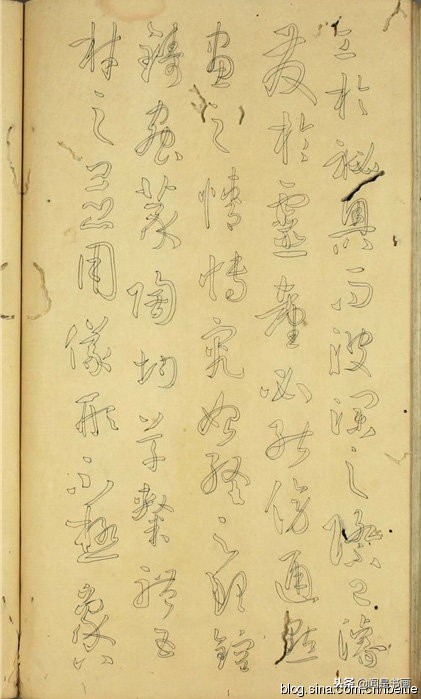 工於秘奧而波瀾之際已濬
發於靈臺必能傍通點
畫之情博究始終之理鎔
鑄蟲篆陶均草隸體五
材之並用儀形不極象八
头条@闻是书画